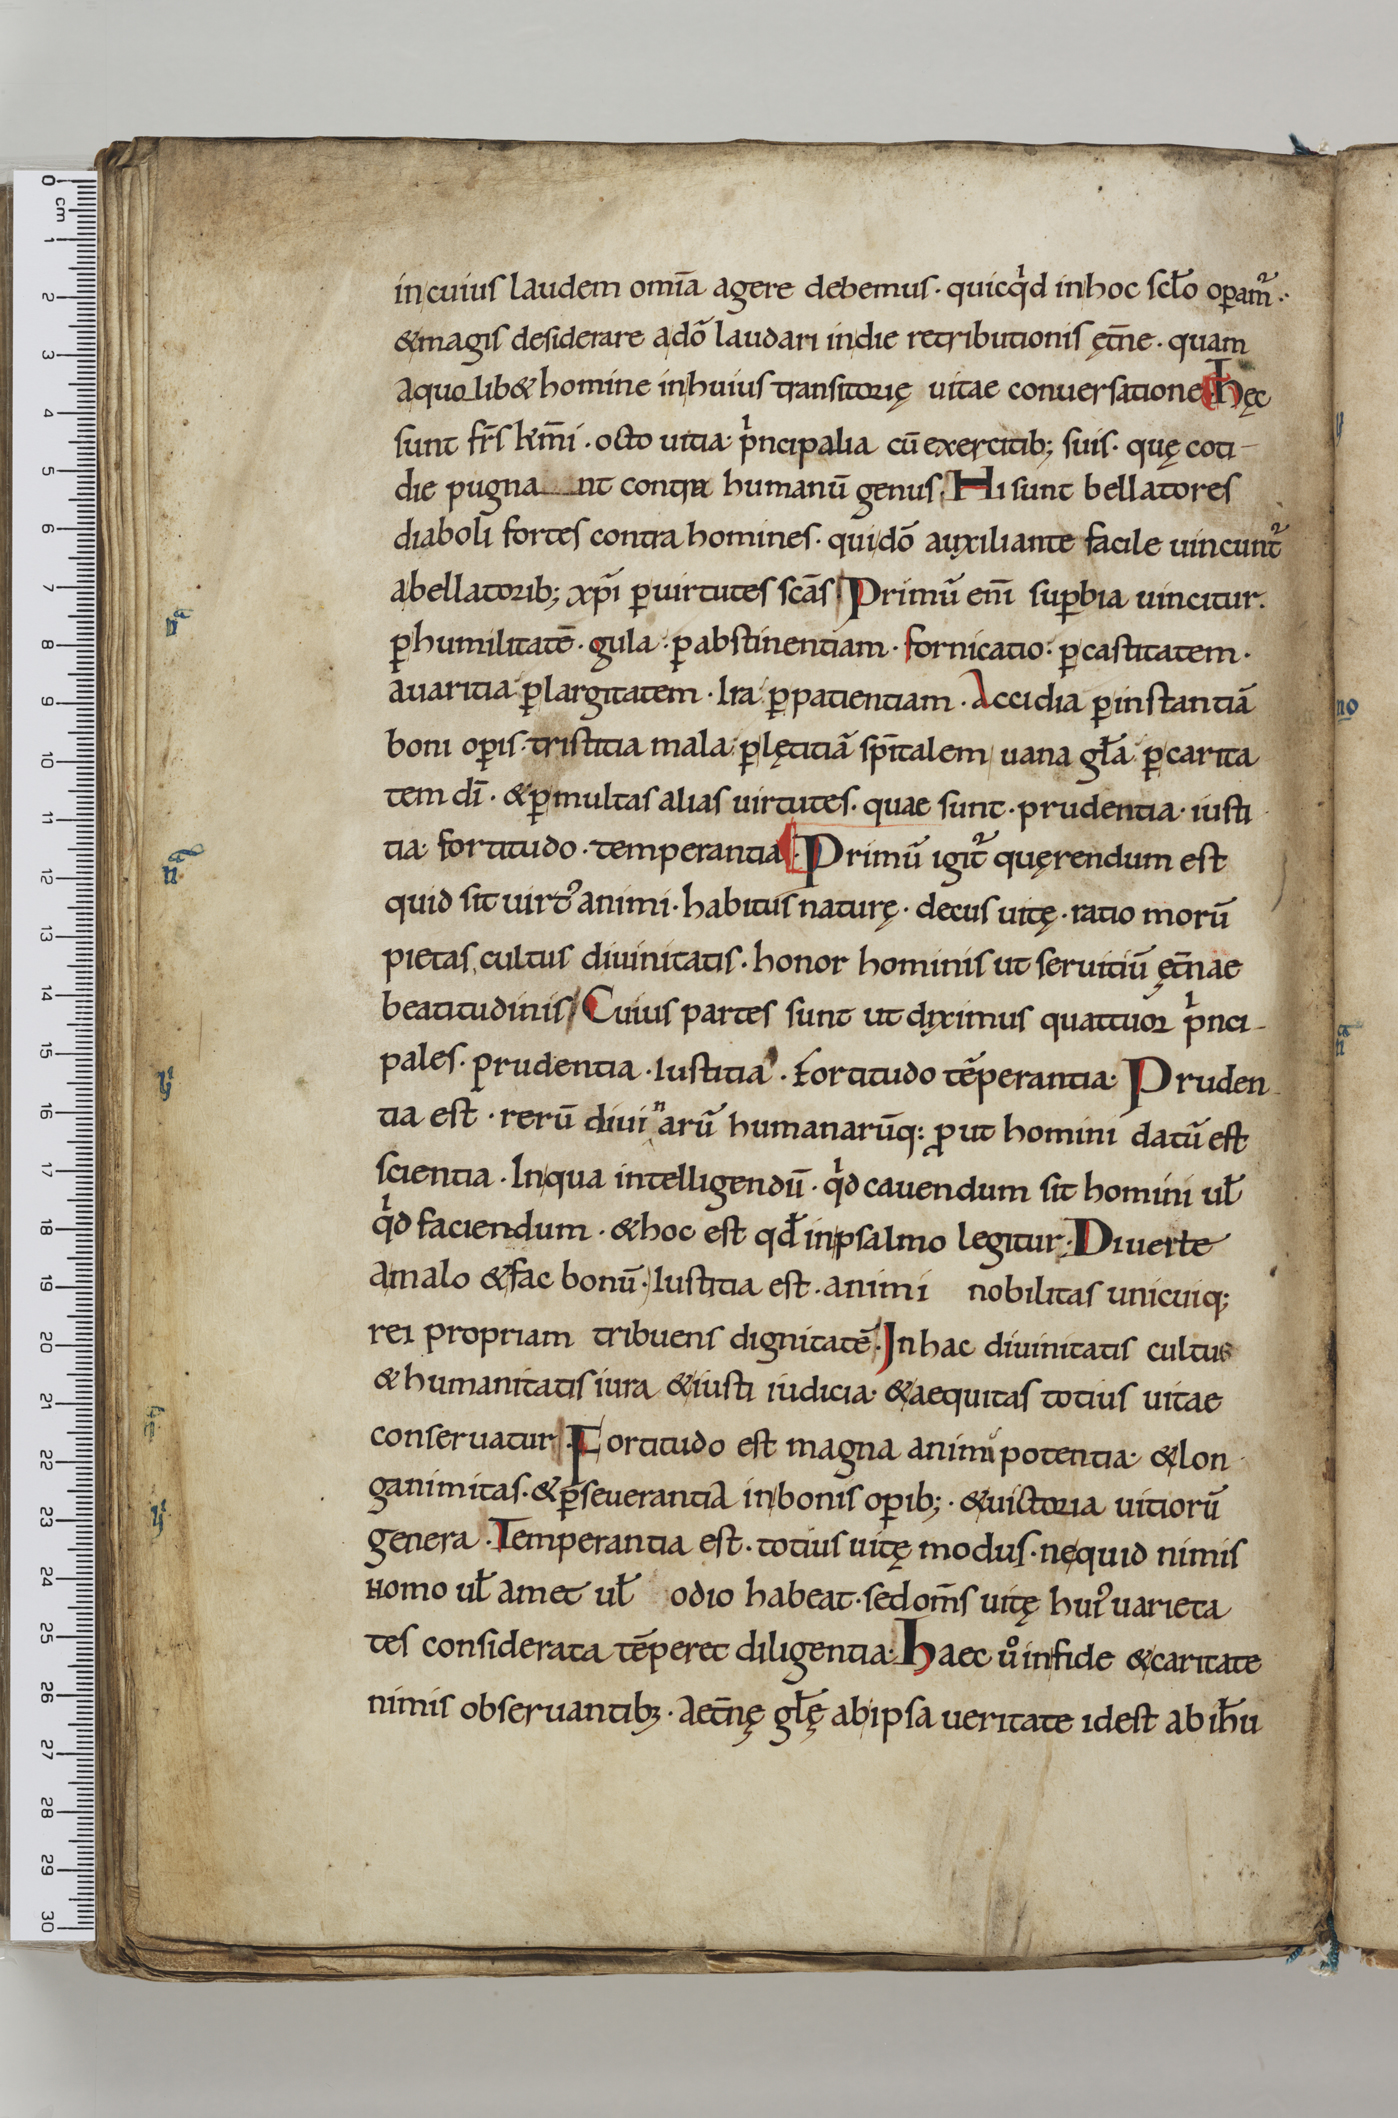 in cuius laudem om̄ia agere debemus · quicqⁱd in hoc scl̃o op̲am᷑ ·
& magis desiderare a dõ laudari in die retributionis ęt̄ne · quam
a quo lib& homine in huius transitorię uitae conuersatione · hęc
sunt fr̄s km̄i · octo uitia pⁱncipalia cū exercitib; suis · quę coti-
die pugna nt contra humanū genus · Hi sunt bellatores
diaboli fortes contra homines · qui dõ auxiliante facile uincunt᷑
a bellatorib; xp̄i ꝑ uirtutes scās Primū eni̅ suꝑbia uincitur ·
ꝑ humilitatē · gula · ꝑ abstinentiam · fornicatio · ꝑ castitatem ·
auaritia ꝑ largitatem · Ira ꝑ patientiam · Accidia ꝑ instantiā
boni oꝑis · tristitia mala ꝑ lętitiā sp̄italem uana gl̃a ꝑ carita
tem dī · & ꝑ multas alias uirtutes · quae sunt · prudentia · iusti
tia · fortitudo · temperantia · Primū igit᷑ quęrendum est
quid sit uirtꝰ animi · habitus naturę · decus uitę · ratio morū
pietas, cultus diuinitatis · honor hominis ut seruitiū ęt̄nae
beatitudinis Cuius partes sunt ut diximus quattuor pⁱnci-
pales · prudentia · Iustitia · fortitudo tēperantia · Pruden-
tia est · rerū diuiⁿarū humanarūq: ꝓut homini datū est
scientia · In qua intelligendū · qⁱd cauendum sit homini ul̃
qⁱd faciendum · & hoc est qd̃ in psalmo legitur · Diuerte
a malo & fac bonū · Iustitia est · animi nobilitas unicuiq;
rei propriam tribuens dignitatē · In hac diuinitatis cultus
& humanitatis iura & iusti iudicia · & aequitas totius uitae
conseruatur Fortitudo est magna animi potentia · & lon
ganimitas · & ꝑseuerantia in bonis oꝑib; · & uictoria uitiorū
genera · Temperantia est · totius uitę modus · ne quid nimis
homo ul̃ amet ul̃ odio habeat · sed om̄s uitę huiꝰ uarieta
tes considerata tēperet diligentia · Haec uͦ in fide & caritate
nimis obseruantibꝫ · aet̄nę gl̃ę ab ipsa ueritate id est ab ih̄u